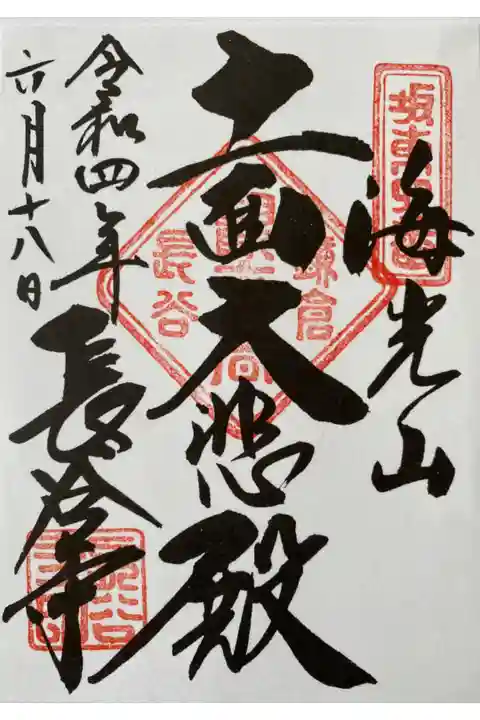 坂東
海光山
十一面大悲殿
鎌倉
長谷
令和四年
六月十八日
長谷寺